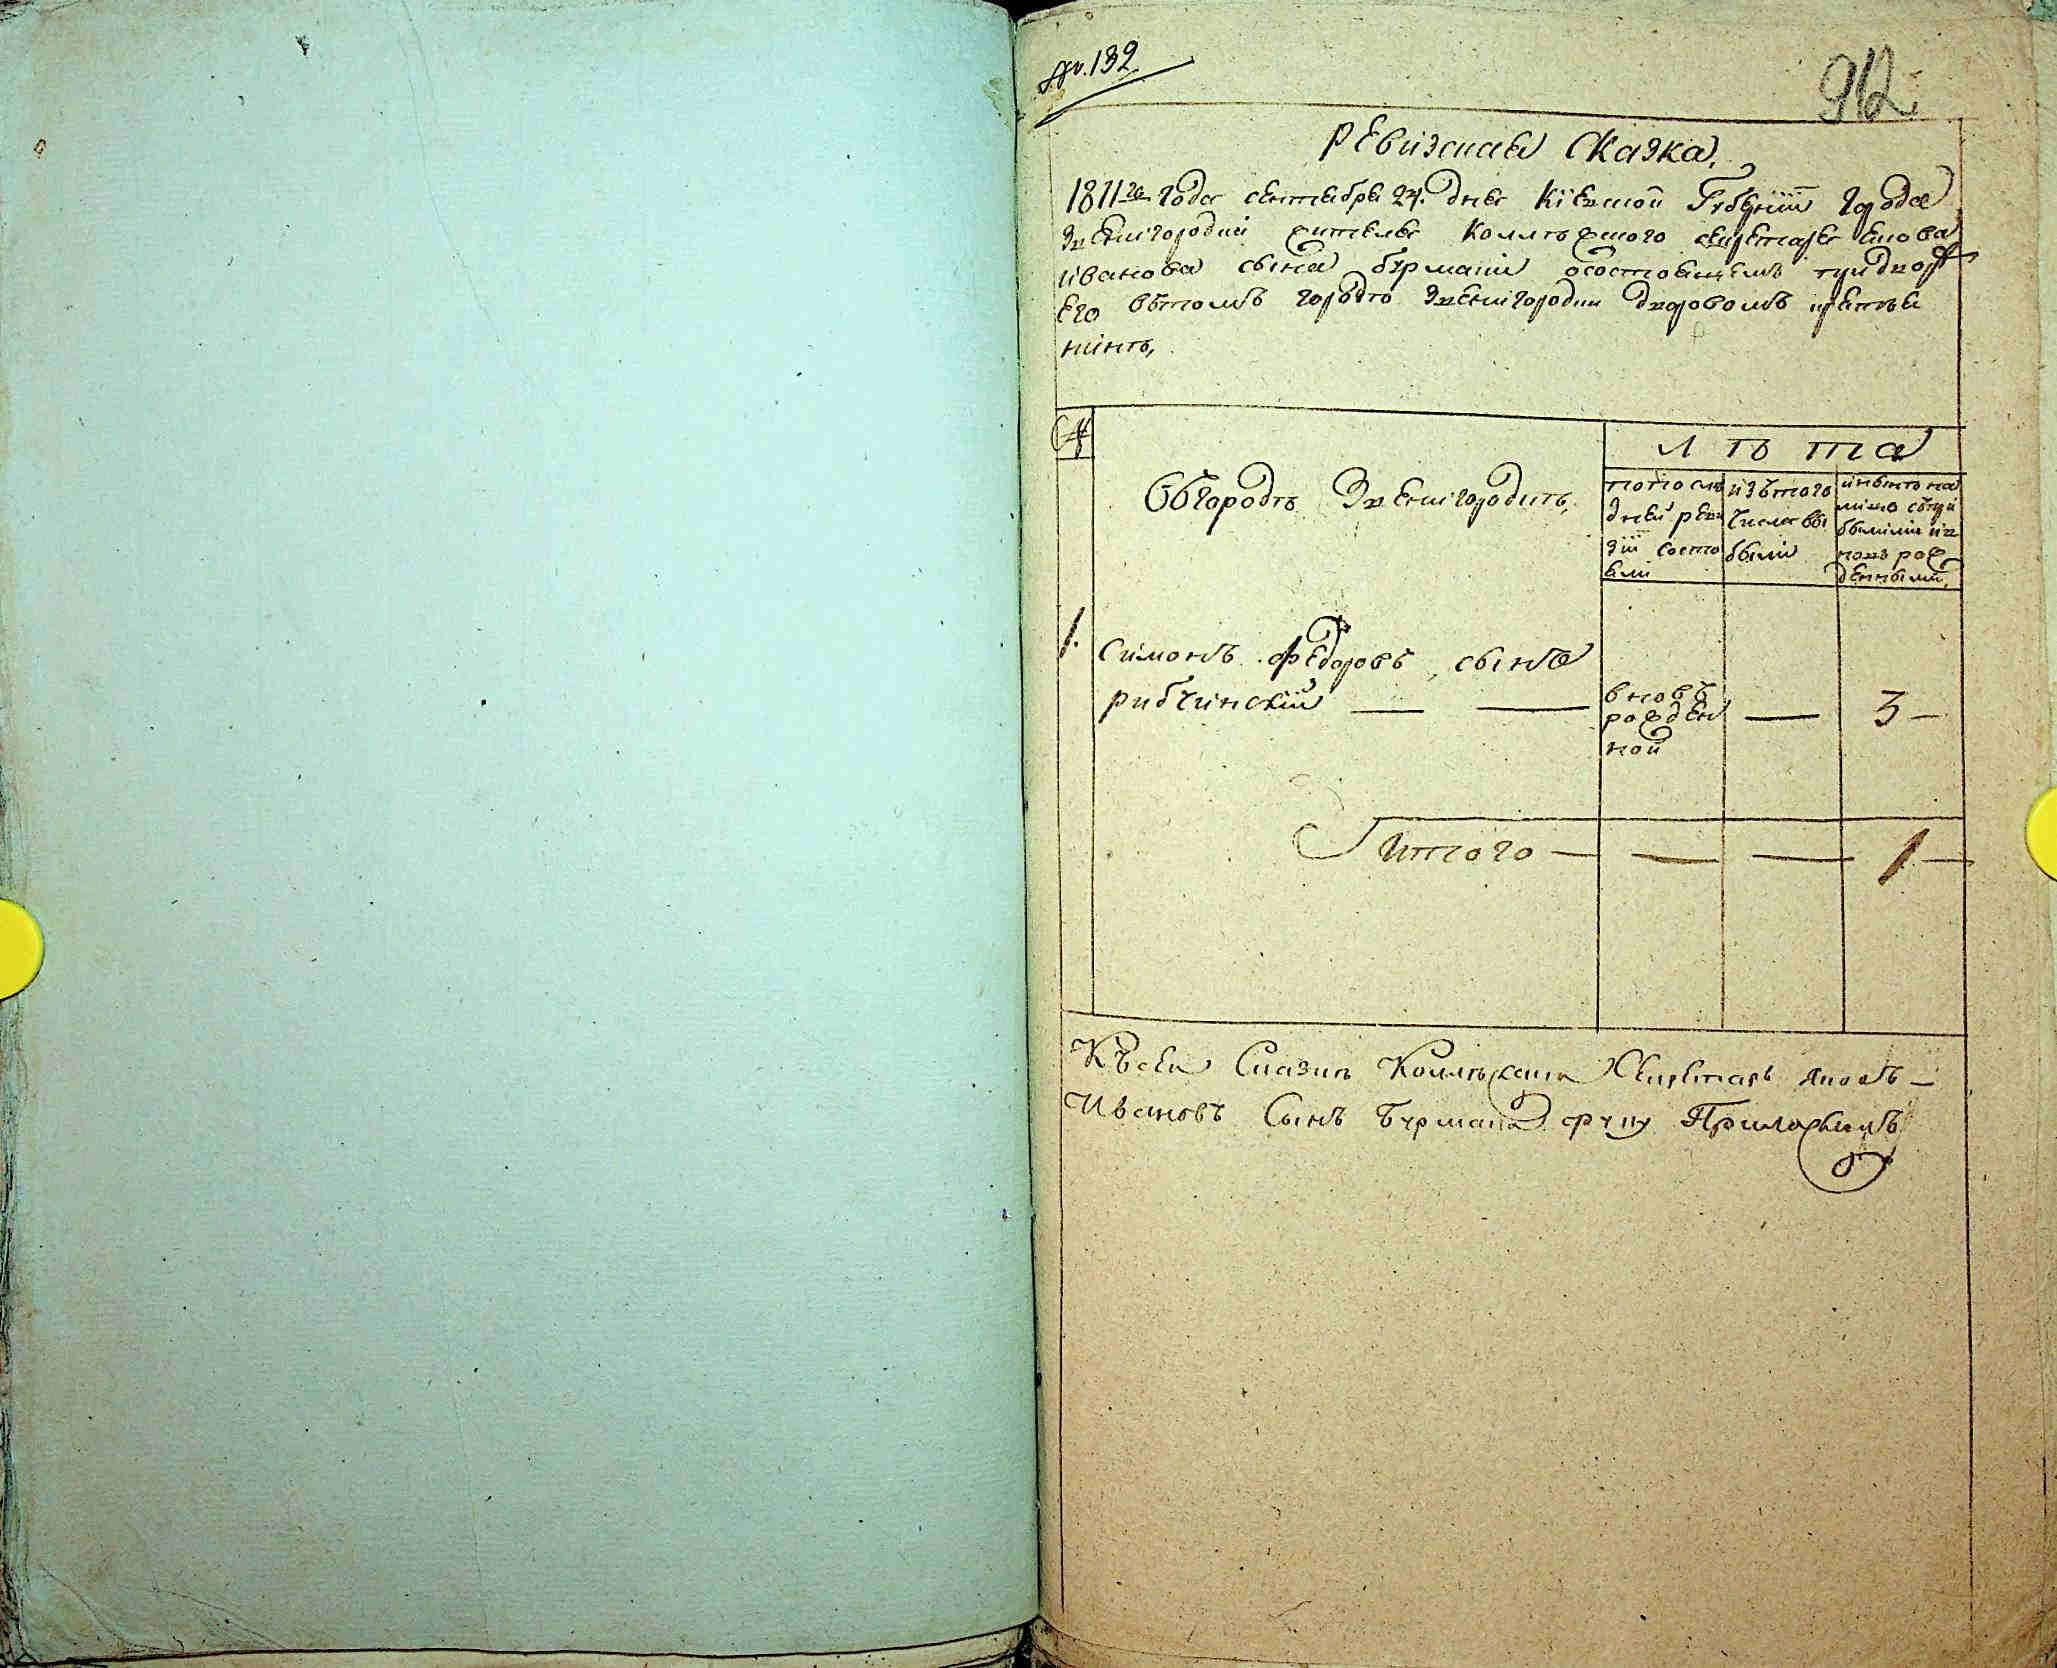 №. 132
912
Ревизская Сказка,
1811го года сентября 24. дня Кіевской Губерніи города
Звенигородки жителя коллежского секретаря якова
иванова сына бурмаки осостоящемъ при дворѣ
его вѣтомъ городѣ Звенигородки дворовомъ крестья
нинѣ,
№
Въгородѣ Звенигородкѣ,
лѣта
попослѣ
дней реви
зіи состо
яли
изътого
числа вы
были
инынѣ на
лицо съпри
былими ив
новь рож
денными,
1.
Симонъ Федоровъ сынъ
рибчинскій
вновь
рожден
ной
3
Итого
1
Късей Сказки Коллежский Секретарь Яковъ
Ивановъ Сынъ Бурмака руку Приложилъ